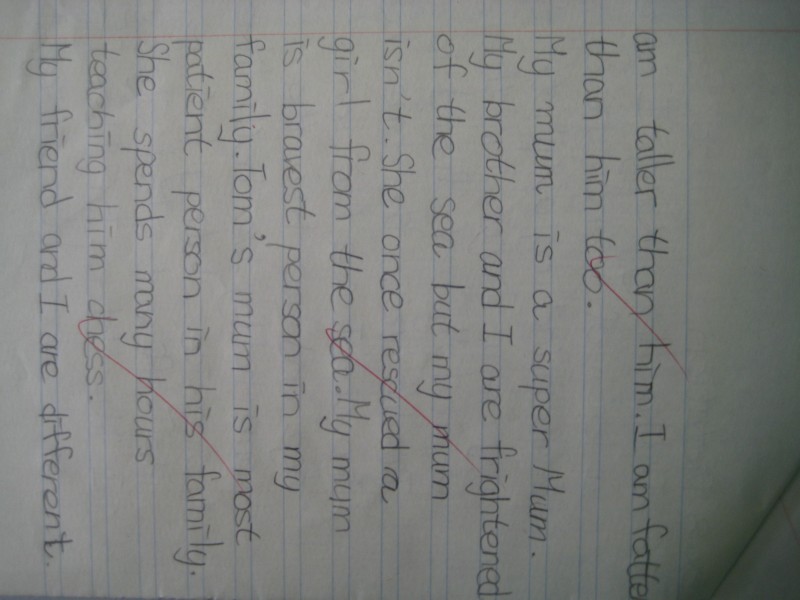 am taller than him. I am fatte
than him too.
My mum is a super Mum.
My brother and I are frightened
of the sea but my mum
isn't. She once rescued a
girl from the sea. My mum
is bravest person in my
family. Tom's mum is most
patient person in his family.
She spends many hours
teaching him chess.
My friend and I are different.